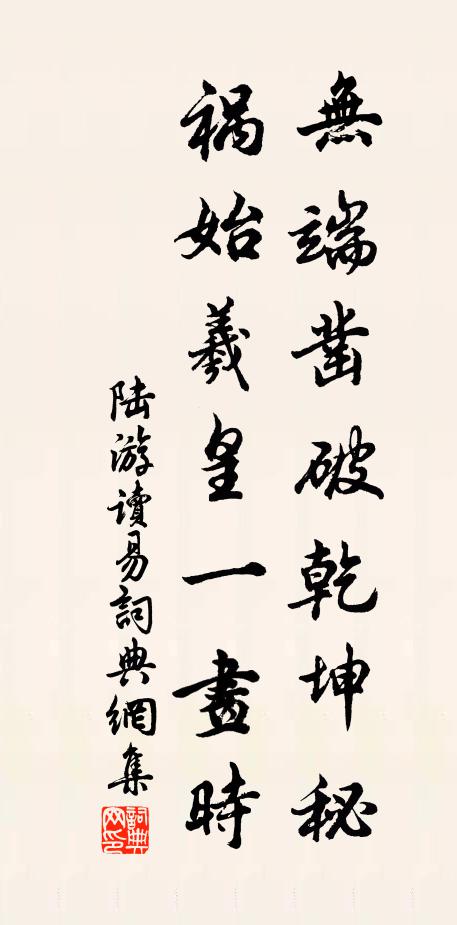 無端凿破乾坤秘
禍始羲皇一畫時
陆游讀易詞典網集
詞典网印